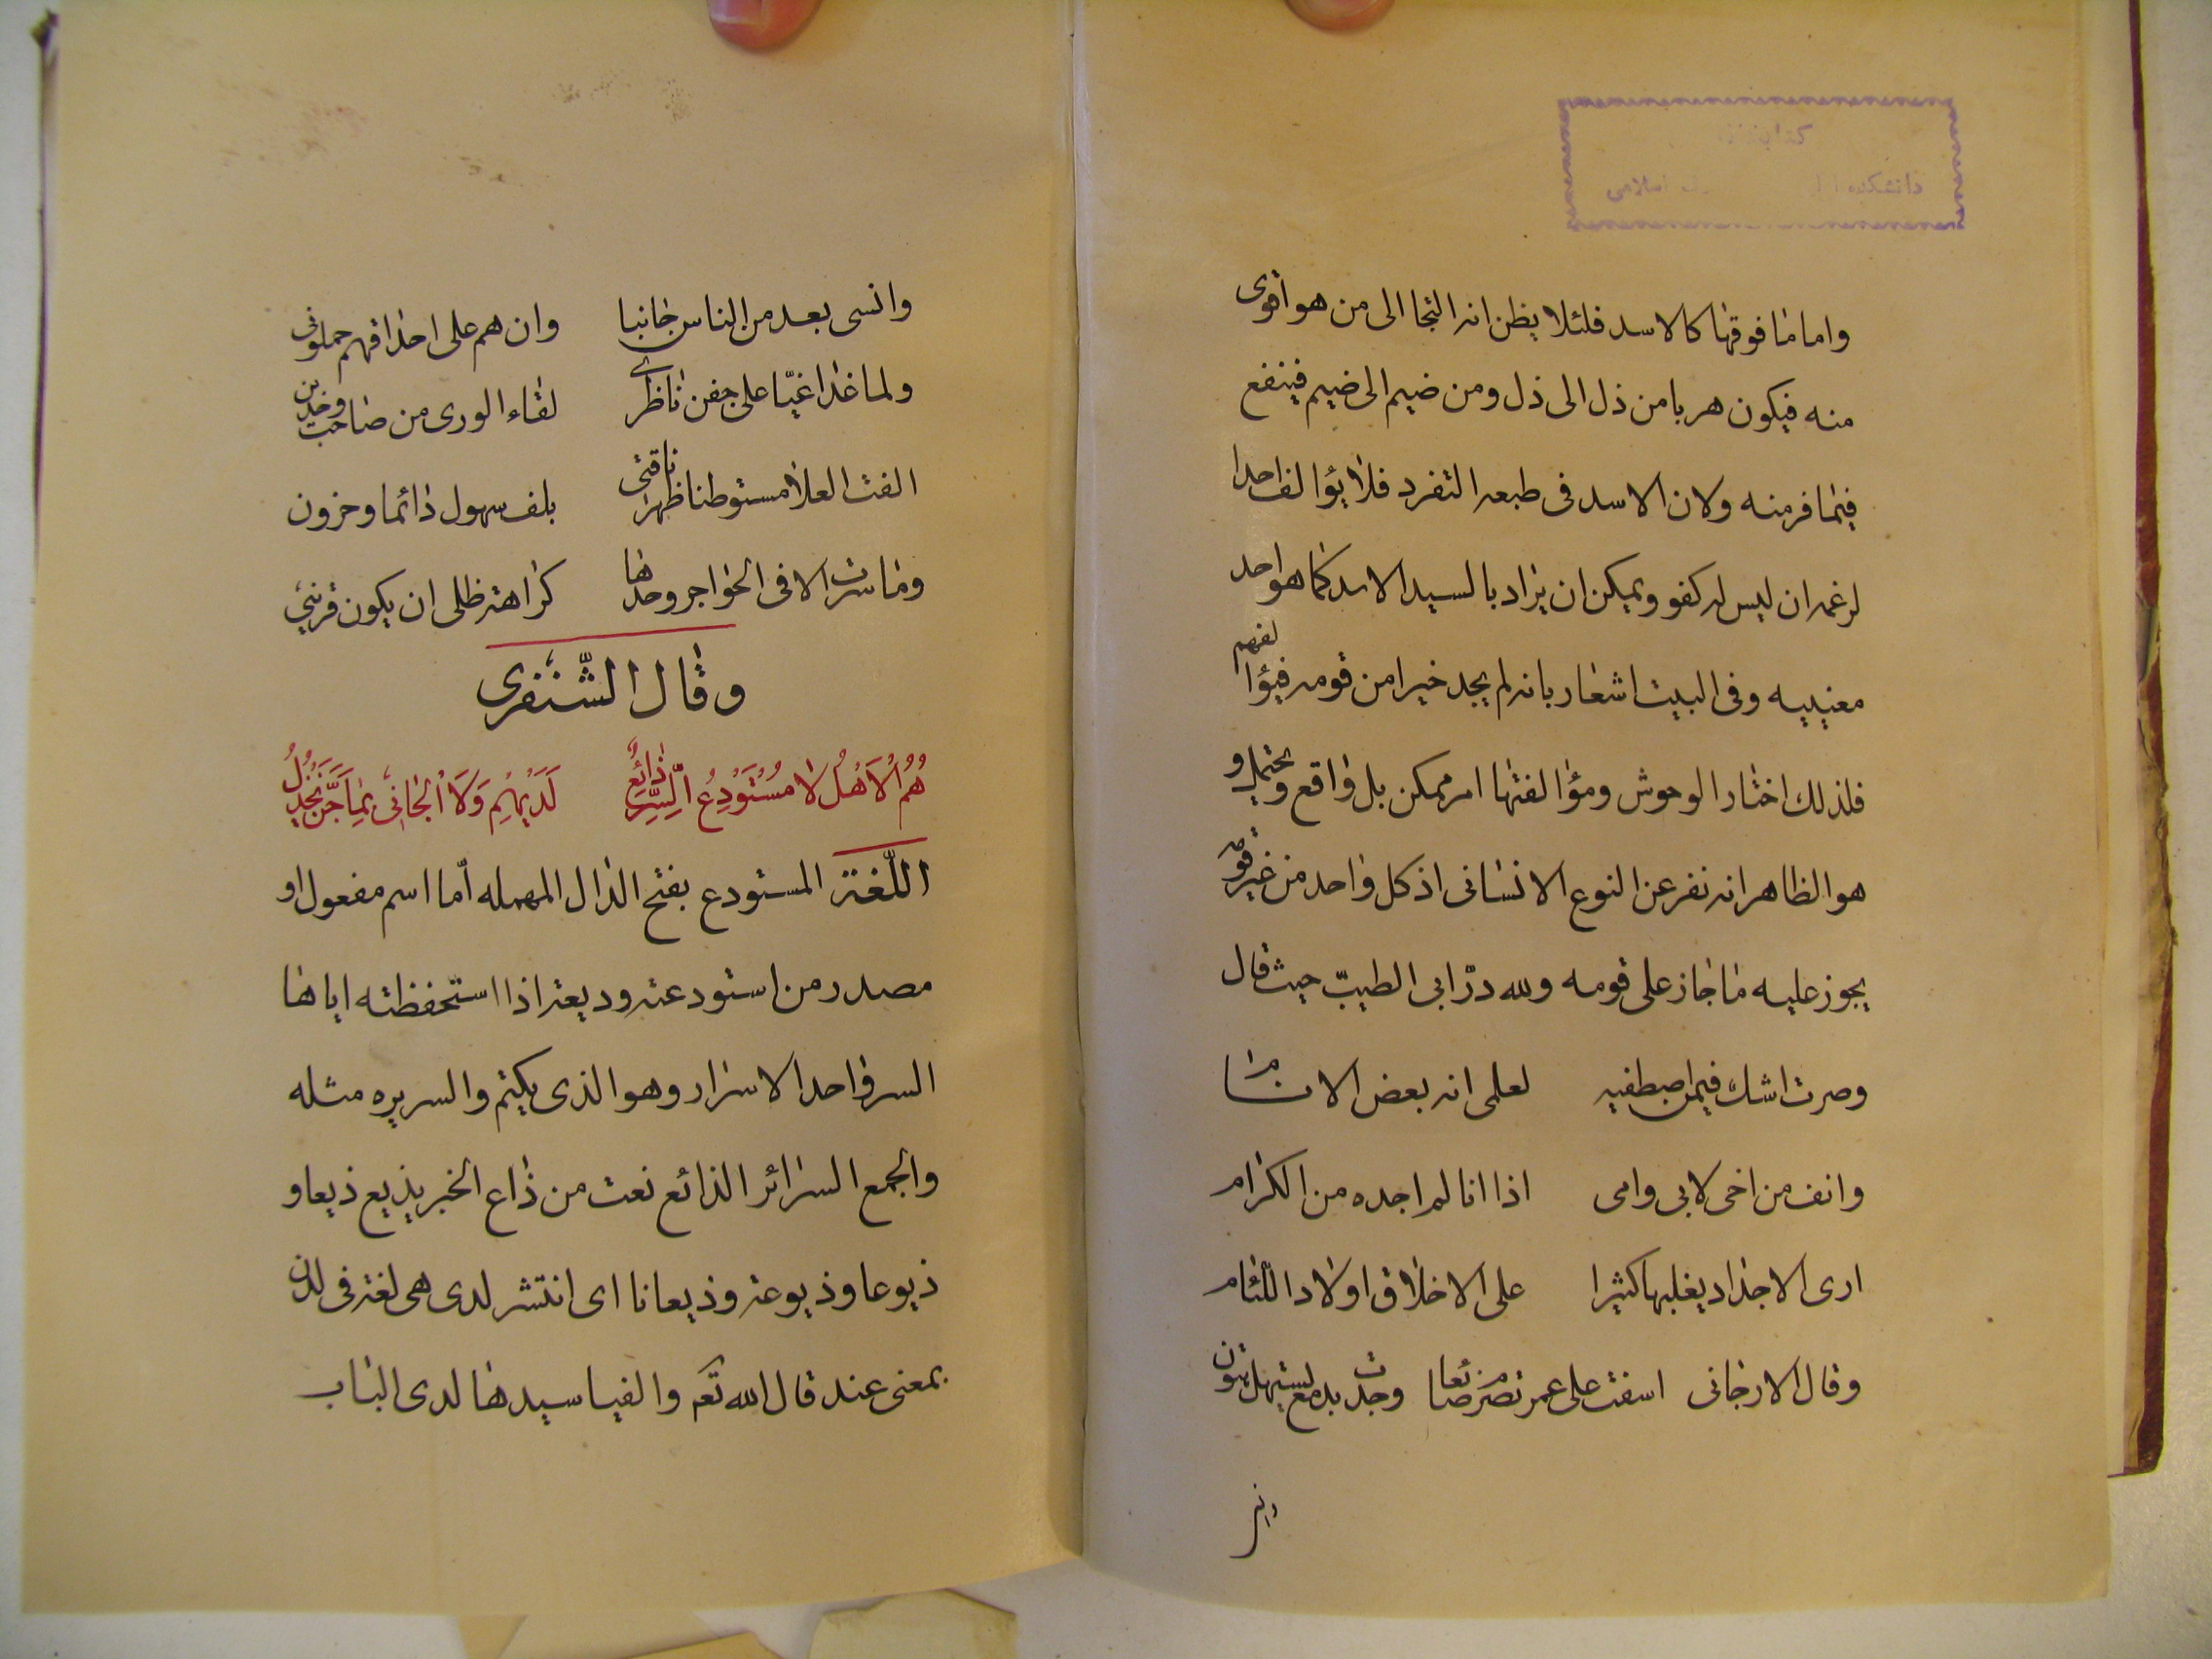 كتابخانه
دانشكده اسلامى
واما ما فوقها كالاسد فلئلا يظن انه التجا الى من هو اقوى
منه فيكون هربا من ذل الى ذل ومن ضيم الى ضيم فينفع
فيما فر منه ولان الاسد فى طبعه التفرد فلا يؤالف احدا
لزعمه ان ليس له كفو ويمكن ان يراد بالسيد الاسد كما هو احد
معنييه وفى البيت اشعار بانه لم يجد خيرا من قومه فيؤالفهم
فلذلك اختار الوحوش ومؤالفتها امر ممكن بل واقع ويحتمل و
هو الظاهر انه نفر عن النوع الانسانى اذ كل واحد من غير قومه
يجوز عليه ما جاز على قومه ولله درّ ابى الطيبّ حيث قال
وصرت اشك فيمن اصطفيه لعلمى انه بعض الانام
وانف من اخى لابى وامى اذا انا لم اجده من الكرام
ارى الاجداد يغلبها كثيرا على الاخلاق اولاد اللئام
وقال الارجانى اسفت على عمر تصرم ضائعا وجدت بدمع يستهل هتون
وانسى بعد من الناس جانبا وان هم على احداقهم حملونى
ولما غدا غيّا على جفن ناظرى لقاء الورى من صاحب وخدين
الفت العلا مستوطنا ظهر ناقتى بلف سهول دائما وحزون
وما سرت الا فى الهواجر وحدها كراهة ظلى ان يكون قرينى
وقال الشّنفرى
هُمُ الْاَهْلُ لا مُسْتَوْدِعُ السِّرِّ ذائِعٌ لَدَيْهِمْ وَلَا الْجانى بِمَا جَرَّ يُخْذَلُ
اللّغة المستودع بفتح الدال المهمله اّما اسم مفعول او
مصدر من استودعته وديعة اذا استحفظته اياها
السر واحد الاسرار وهو الذى يكتم والسريره مثله
والجمع السرائر الذائع نعت من ذاع الخبر يذيع ذيعا و
ذيوعا وذيوعة وذيعانا اى انتشر لدى هى لغة فى لدن
بمعنى عند قال الله تعم والفيا سيدها لدى الباب